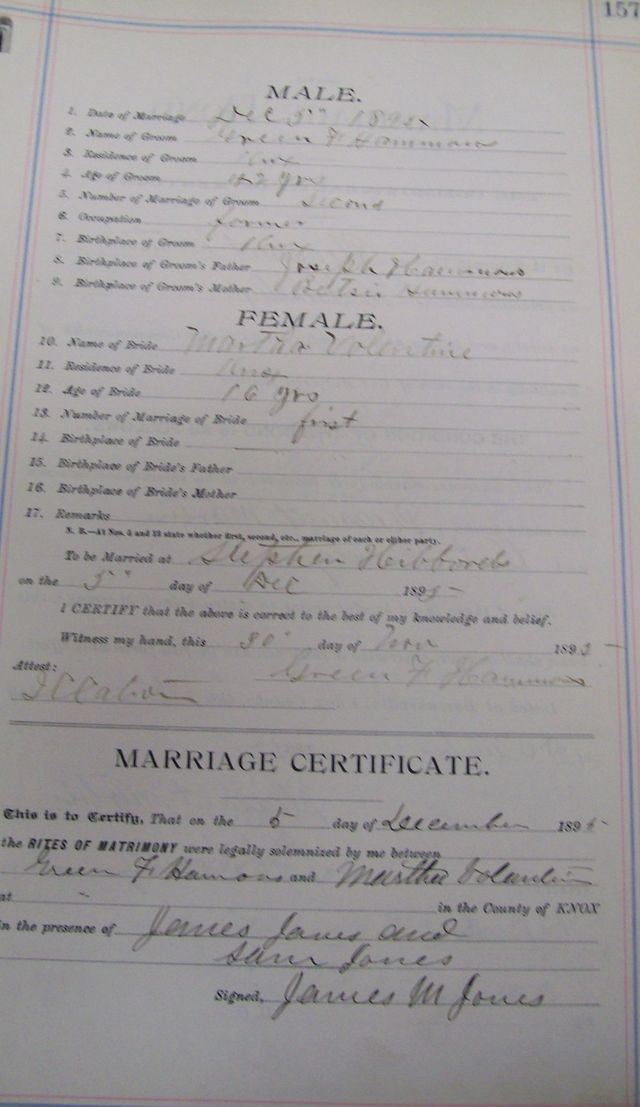 157
MALE.
1. Date of Marriage Dec 5" 1895
2. Name of Groom Green F Hammons
3. Residence of Groom Knx
4. Age of Groom 42 yrs
5. Number of Marriage of Groom Second
6. Occupation farmer
7. Birthplace of Groom Knx
8. Birthplace of Groom's Father Joseph Hammons
9. Birthplace of Groom's Mother Betsie Hammons
FEMALE.
10. Name of Bride Martha Volentine
11. Residence of Bride Knox
12. Age of Bride 16 yrs
13. Number of Marriage of Bride first
14. Birthplace of Bride
15. Birthplace of Bride's Father
16. Birthplace of Bride's Mother
17. Remarks
N. B.—At Nos. 5 and 13 state whether first, second, etc., marriage of each or either party.
To be Married at Stephen
on the 5" day of Dec 1895
I CERTIFY that the above is correct to the best of my knowledge and belief.
Witness my hand, this 30" day of Nov 1895
Attest: Green F Hammons
MARRIAGE CERTIFICATE.
This is to Certify, That on the 5 day of December 1895
the RITES OF MATRIMONY were legally solemnized by me between
Green F Hamons and Martha Volentine
at in the County of KNOX
in the presence of James Jones and
Sam Jones
Signed, James M Jones